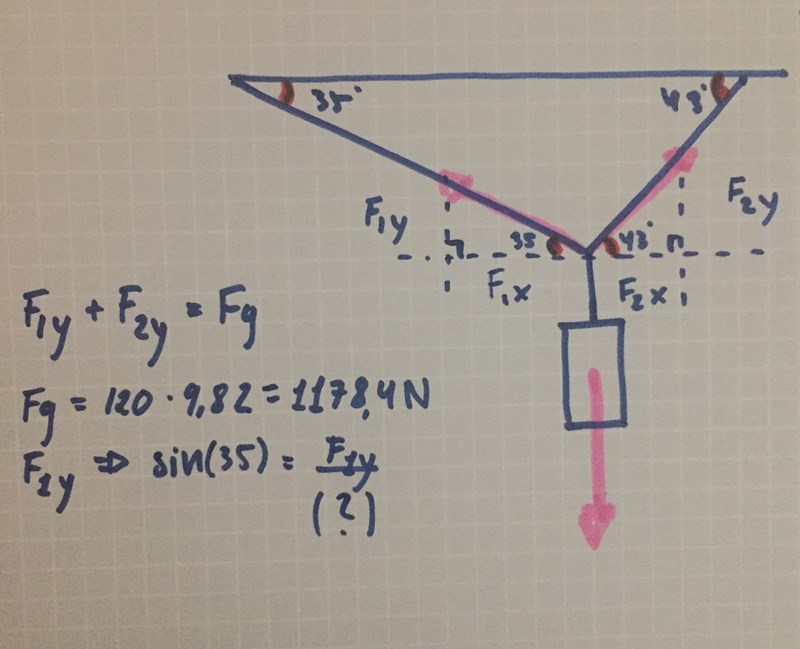 35°
43°
F1y
F2y
35
43°
F1x
F2x
F1y + F2y = Fg
Fg = 120 · 9,82 = 1178,4 N
F1y => sin(35) = F1y
(?)